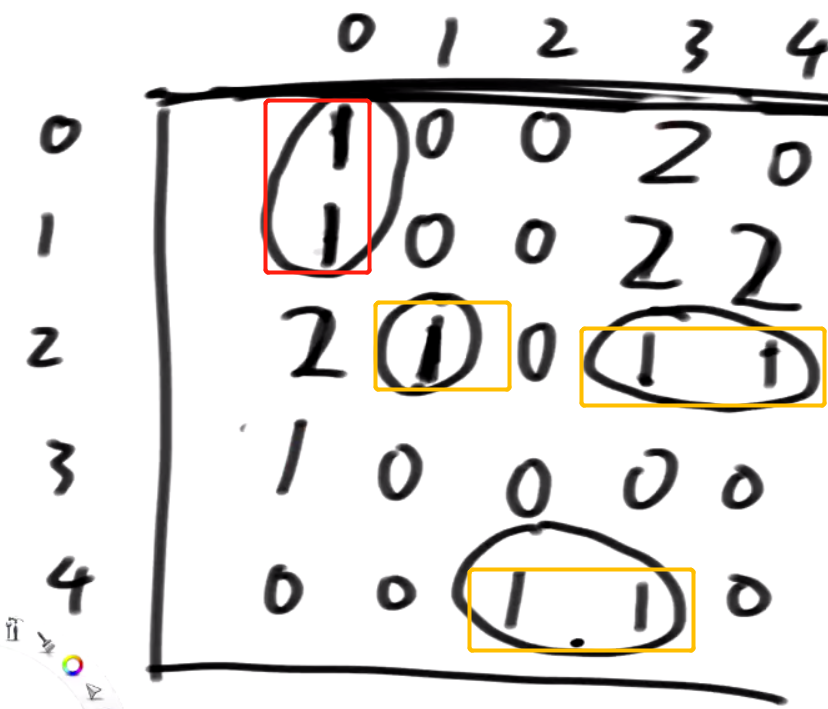 0 1 2 3 4
0 1 0 0 2 0
1 1 0 0 2 2
2 2 1 0 1 1
3 1 0 0 0 0
4 0 0 1 1 0